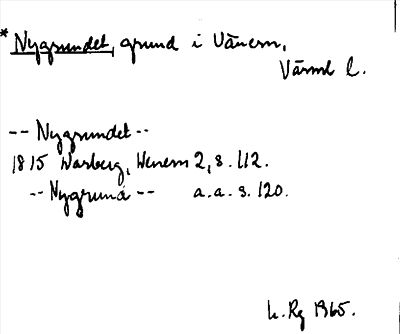 * Nygrundet, grund i Vänern,
Värml l.
-- Nygrundet --
1815 Warberg, Wenern 2, s. 112.
-- Nygrund -- a.a. s. 120.
L. Rg 1965.